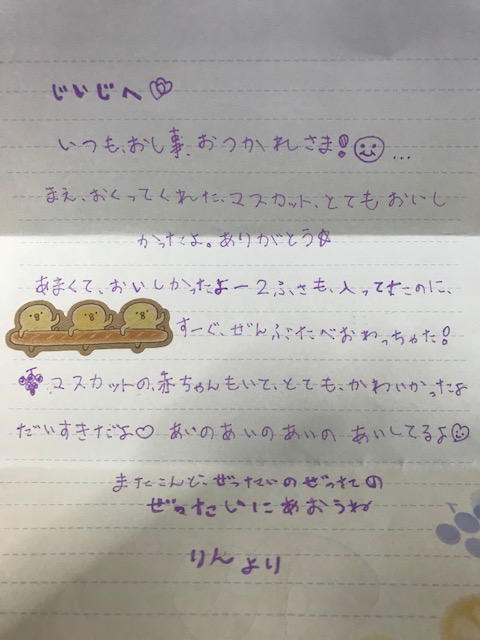 じいじへ♡
いつも、おし事、おつかれさま!☺...
まえ、おくってくれた、マスカット、とてもおいし
かったよ。ありがとう☆
あまくて、おいしかったよー2ふさも、入ってたのに、
すーぐ、ぜんぶたべおわっちゃた!
マスカットの、赤ちゃんもいて、とても、かわいかったよ
だいすきだよ♡ あいのあいのあいの あいしてるよ♡
またこんど、ぜったいのぜったの
ぜったいにあおうね
りんより